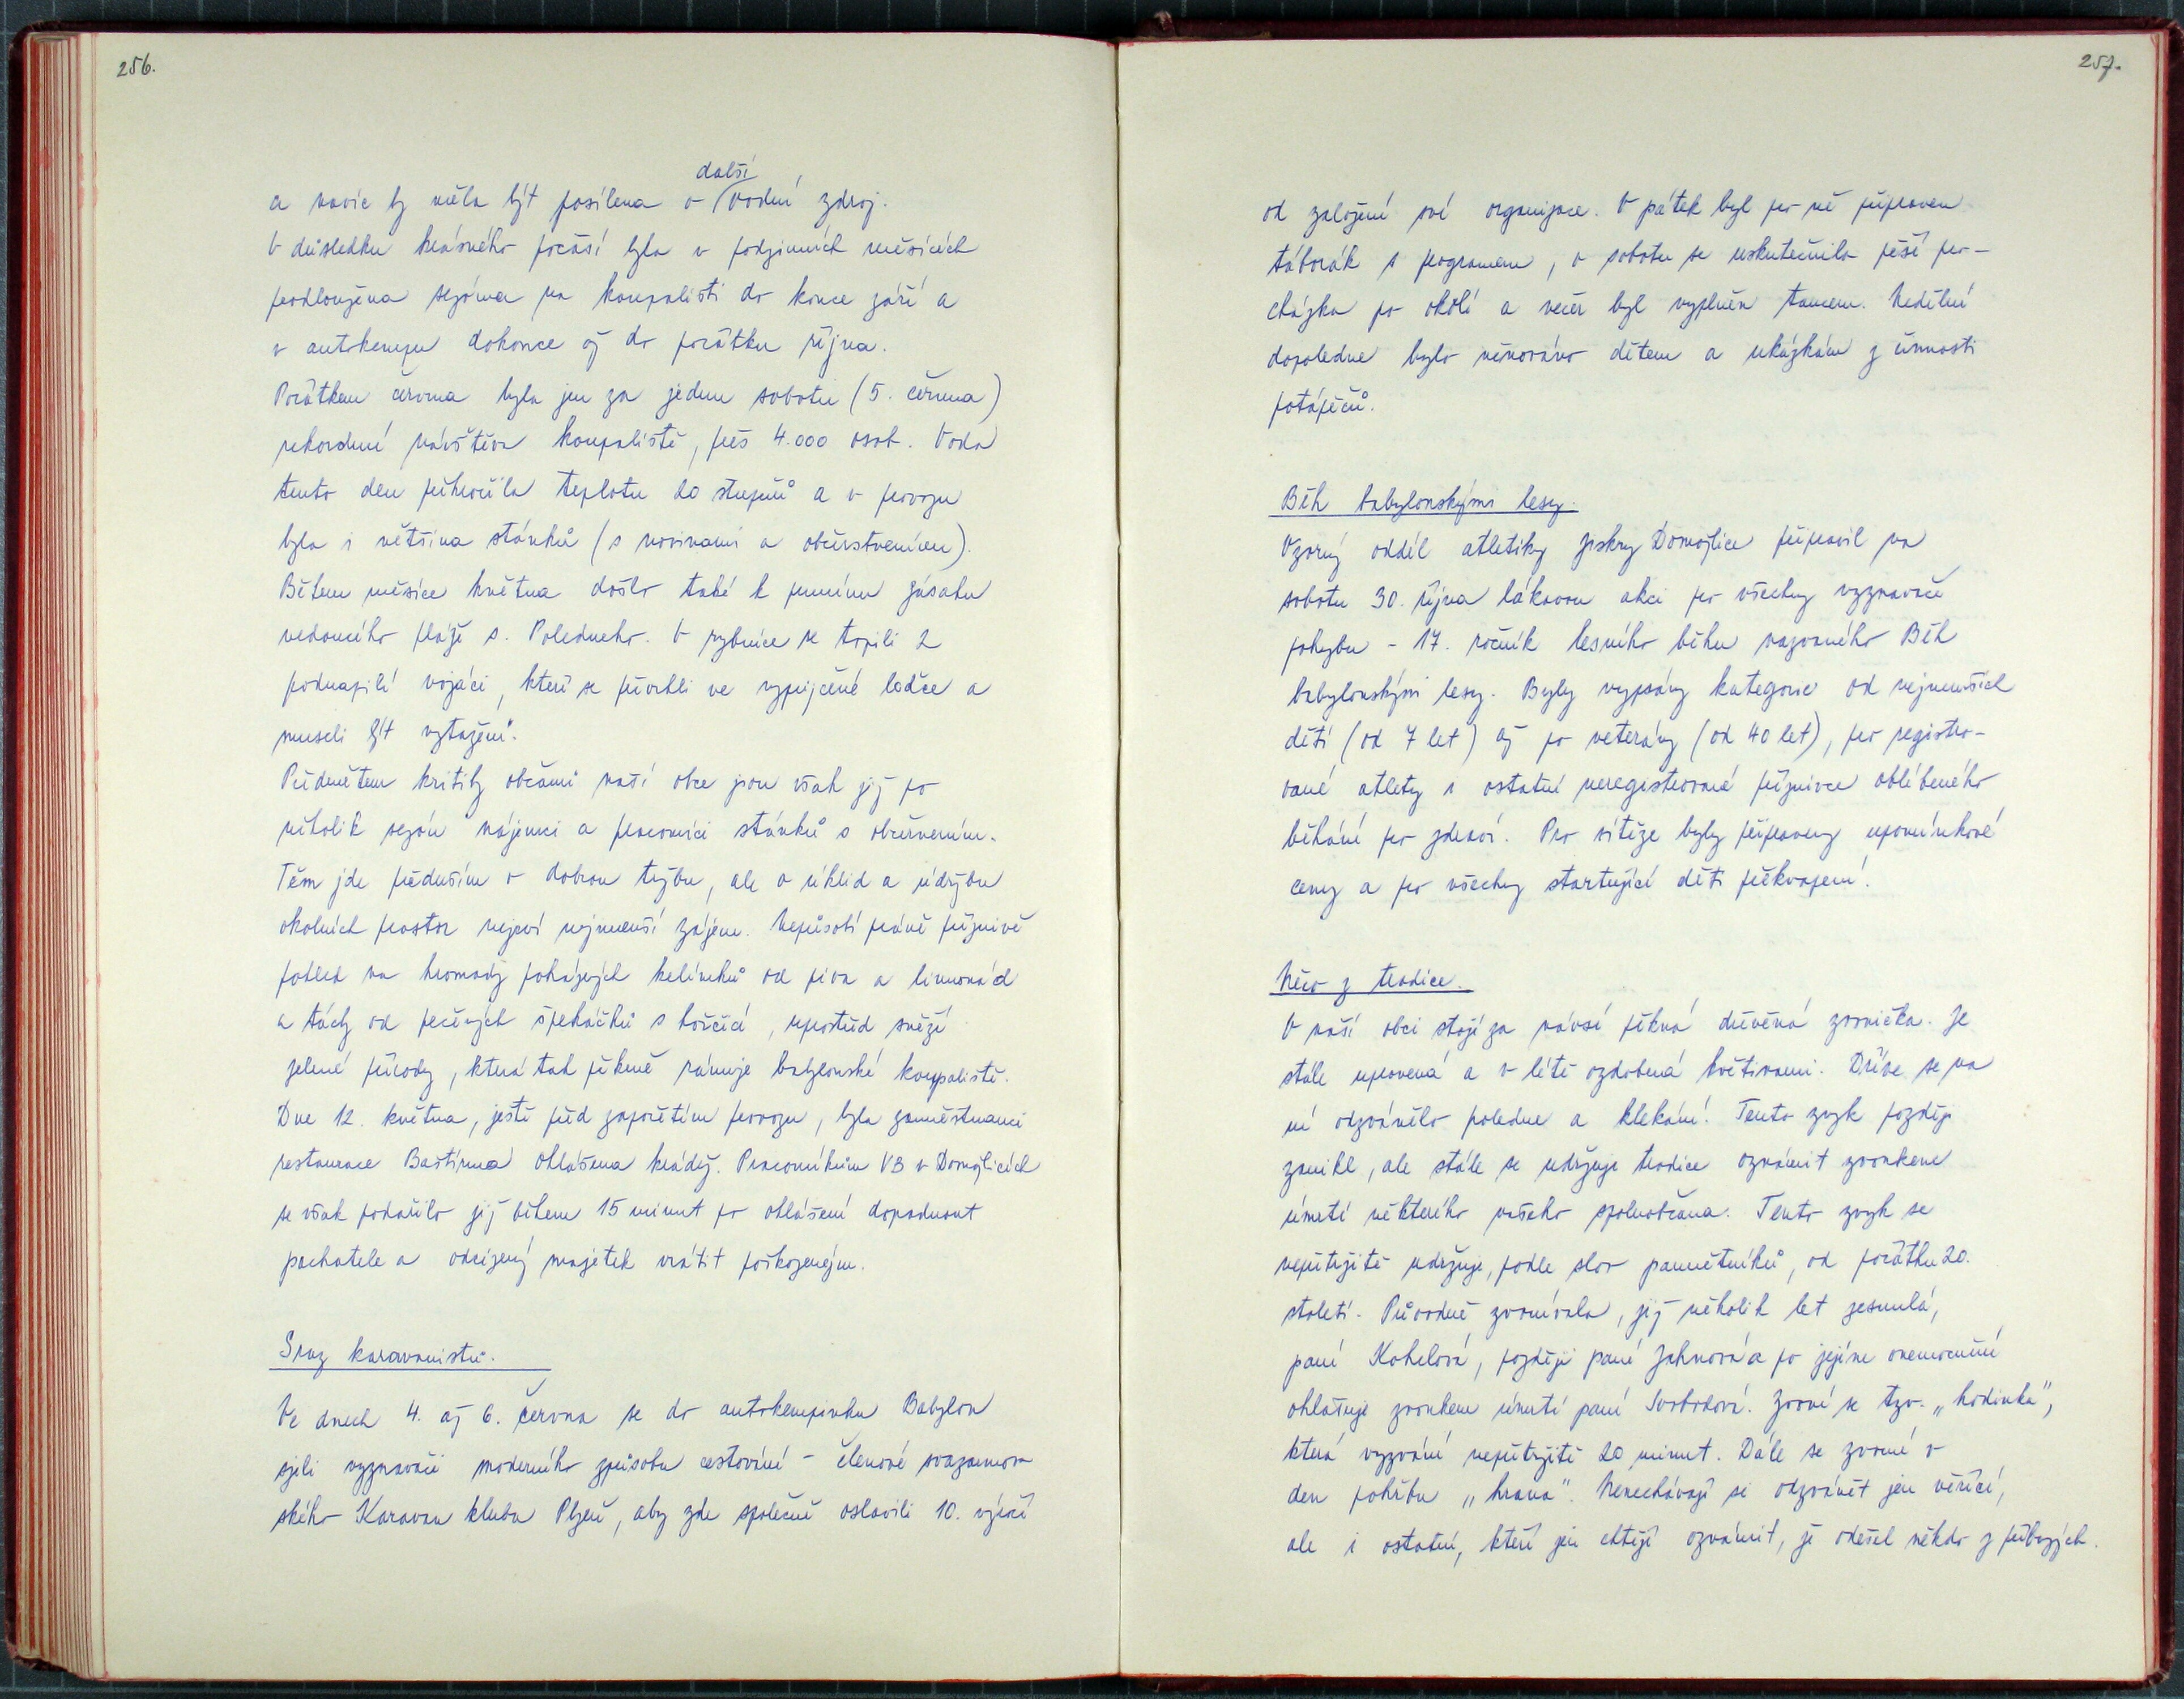 256.
a navíc by měla být posílena o další vodní zdroj.
V důsledku krásného počasí byla v podzimních měsících
prodloužena sezóna na koupališti do konce září a
v autokempu dokonce až do počátku října.
Počátkem června byla jen za jednu sobotu (5. června)
rekordní návštěva koupaliště, přes 4.000 osob. Voda
tento den překročila teplotu 20 stupňů a v provozu
byla i většina stánků (s novinami a občerstvením).
Během měsíce května došlo také k prvnímu zásahu
vedoucího pláže s. Poledneho. V rybníce se topili 2
podnapilí vojáci, kteří se převrhli ve vypůjčené loďce a
museli být vytaženi.
Předmětem kritiky občanů naší obce jsou však již po
několik sezón nájemci a pracovníci stánků s občerstvením.
Těm jde především o dobrou tržbu, ale o úklid a údržbu
okolních prostor nejeví nejmenší zájem. Nepůsobí právě příznivě
pohled na hromady poházených kelímků od piva a limonád
a tácky od pečených špekáčků s hořčicí, uprostřed svěží
zelené přírody, která tak pěkně rámuje babylonské koupaliště.
Dne 12. května, ještě před započetím provozu, byla zaměstnanci
restaurace Baštírna ohlášena krádež. Pracovníkům VB v Domažlicích
se však podařilo již během 15 minut po ohlášení dopadnout
pachatele a odcizený majetek vrátit poškozeným.
Sraz karavanistů.
Ve dnech 4. až 6. června se do autokempinku Babylon
sjeli vyznavači moderního způsobu cestování - členové svazarmov
ského Karavan klubu Plzeň, aby zde společně oslavili 10. výročí
257.
od založení své organizace. V pátek byl pro ně připraven
táborák s programem, v sobotu se uskutečnila pěší pro-
cházka po okolí a večer byl vyplněn tancem. Nedělní
dopoledne bylo věnováno dětem a ukázkám z činnosti
potápěčů.
Běh babylonskými lesy.
Vzorný oddíl atletiky Jiskry Domažlice připravil na
sobotu 30. října lákavou akci pro všechny vyznavače
pohybu - 17. ročník lesního běhu nazvaného Běh
babylonskými lesy. Byly vypsány kategorie od nejmenších
dětí (od 7 let) až po veterány (od 40 let), pro registro-
vané atlety i ostatní neregistrované příznivce oblíbeného
běhání pro zdraví. Pro vítěze byly připraveny upomínkové
ceny a pro všechny startující děti překvapení.
Něco z tradice.
V naší obci stojí za návsí pěkná dřevěná zvonička. Je
stále upravená a v létě ozdobená květinami. Dříve se na
ní odzvánělo poledne a klekání. Tento zvyk později
zanikl, ale stále se udržuje tradice oznámit zvonkem
úmrtí některého našeho spoluobčana. Tento zvyk se
nepřetržitě udržuje, podle slov pamětníků, od počátku 20.
století. Původně zvonívala, již několik let zesnulá,
paní Kohelová, později paní Jahnová a po jejím onemocnění
ohlašuje zvonkem úmrtí paní Svobodová. Zvoní se tzv. „hodinka",
která vyzvání nepřetržitě 20 minut. Dále se zvoní v
den pohřbu „hrana". Nenechávají si odzvánět jen věřící,
ale i ostatní, kteří jen chtějí oznámit, že odešel někdo z příbuzných.